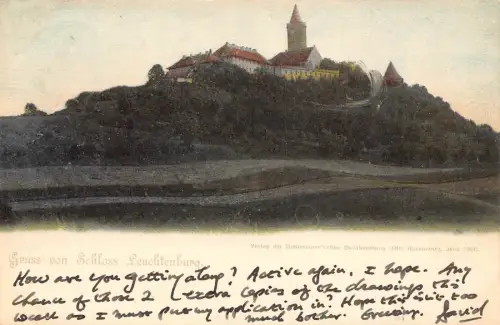 Gruss von Schloss Leuchtenburg.
How are you getting along? Active again, I hope. Any
chance of those 2 xerox copies of the drawings this
week as I must put my application in? Hope this isn't too
much bother. David